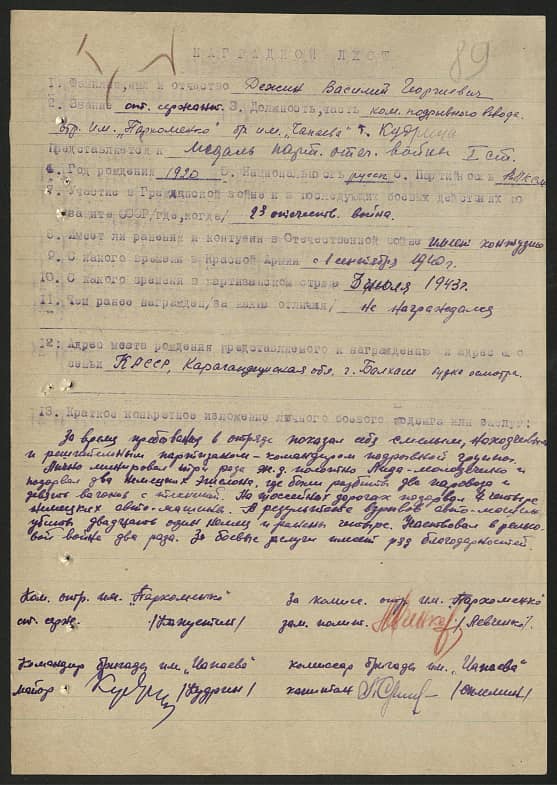 89
НАГРАДНОЙ ЛИСТ
1. Фамилия, имя и отчество Дежин Василий Георгиевич
2. Звание ст. сержант. 3. Должность, часть ком. подрывного взвода.
отр. им. "Пархоменко" бр им. "Чапаева"
Представляется к медаль парт. отеч. войны I ст.
4. Год рождения 1920 5. Национальность русск 6. Партийность ВЛКСМ
7. Участие в Гражданской войне и в последующих боевых действиях по
защите СССР/где, когда/ отечеств. война.
8. Имеет ли ранения и контузии в Отечественной войне имеет контузию
9. С какого времени в Красной Армии с 1 сентября 1940г.
10. С какого времени в партизанском отряде 3 июля 1943г.
11. Чем ранее награжден/за какие отличия/ Не награждался
12. Адрес места рождения представляемого к награждению и адрес его
семьи КАССР, Карагандинская обл, г. Балхаш
13. Краткое конкретное изложение личного боевого подвига или заслуг:
За время пребывания в отряде показал себя смелым, находчивым
и решительным партизаном-командиром подрывной группы.
Лично минировал три раза ж.д. полотно Лида-Молодечно и
подорвал два немецких эшелона, где были разбиты два паровоза и
девять вагонов с техникой. На шоссейных дорогах подорвал 4 четыре
немецких авто-машины. В результате взрывов авто-машин
убито двадцать один немец и ранены четыре. Участвовал в рельсо-
вой войне два раза. За боевые заслуги имеет ряд благодарностей.
Ком. отр. им. "Пархоменко"
ст. серж. /Капустин/
За комисс. отр. им. "Пархоменко"
зам. полит. /Левченко/.
Командир бригады им. "Чапаева"
майор /Кудрин/
комиссар бригады им. "Чапаева"
капитан